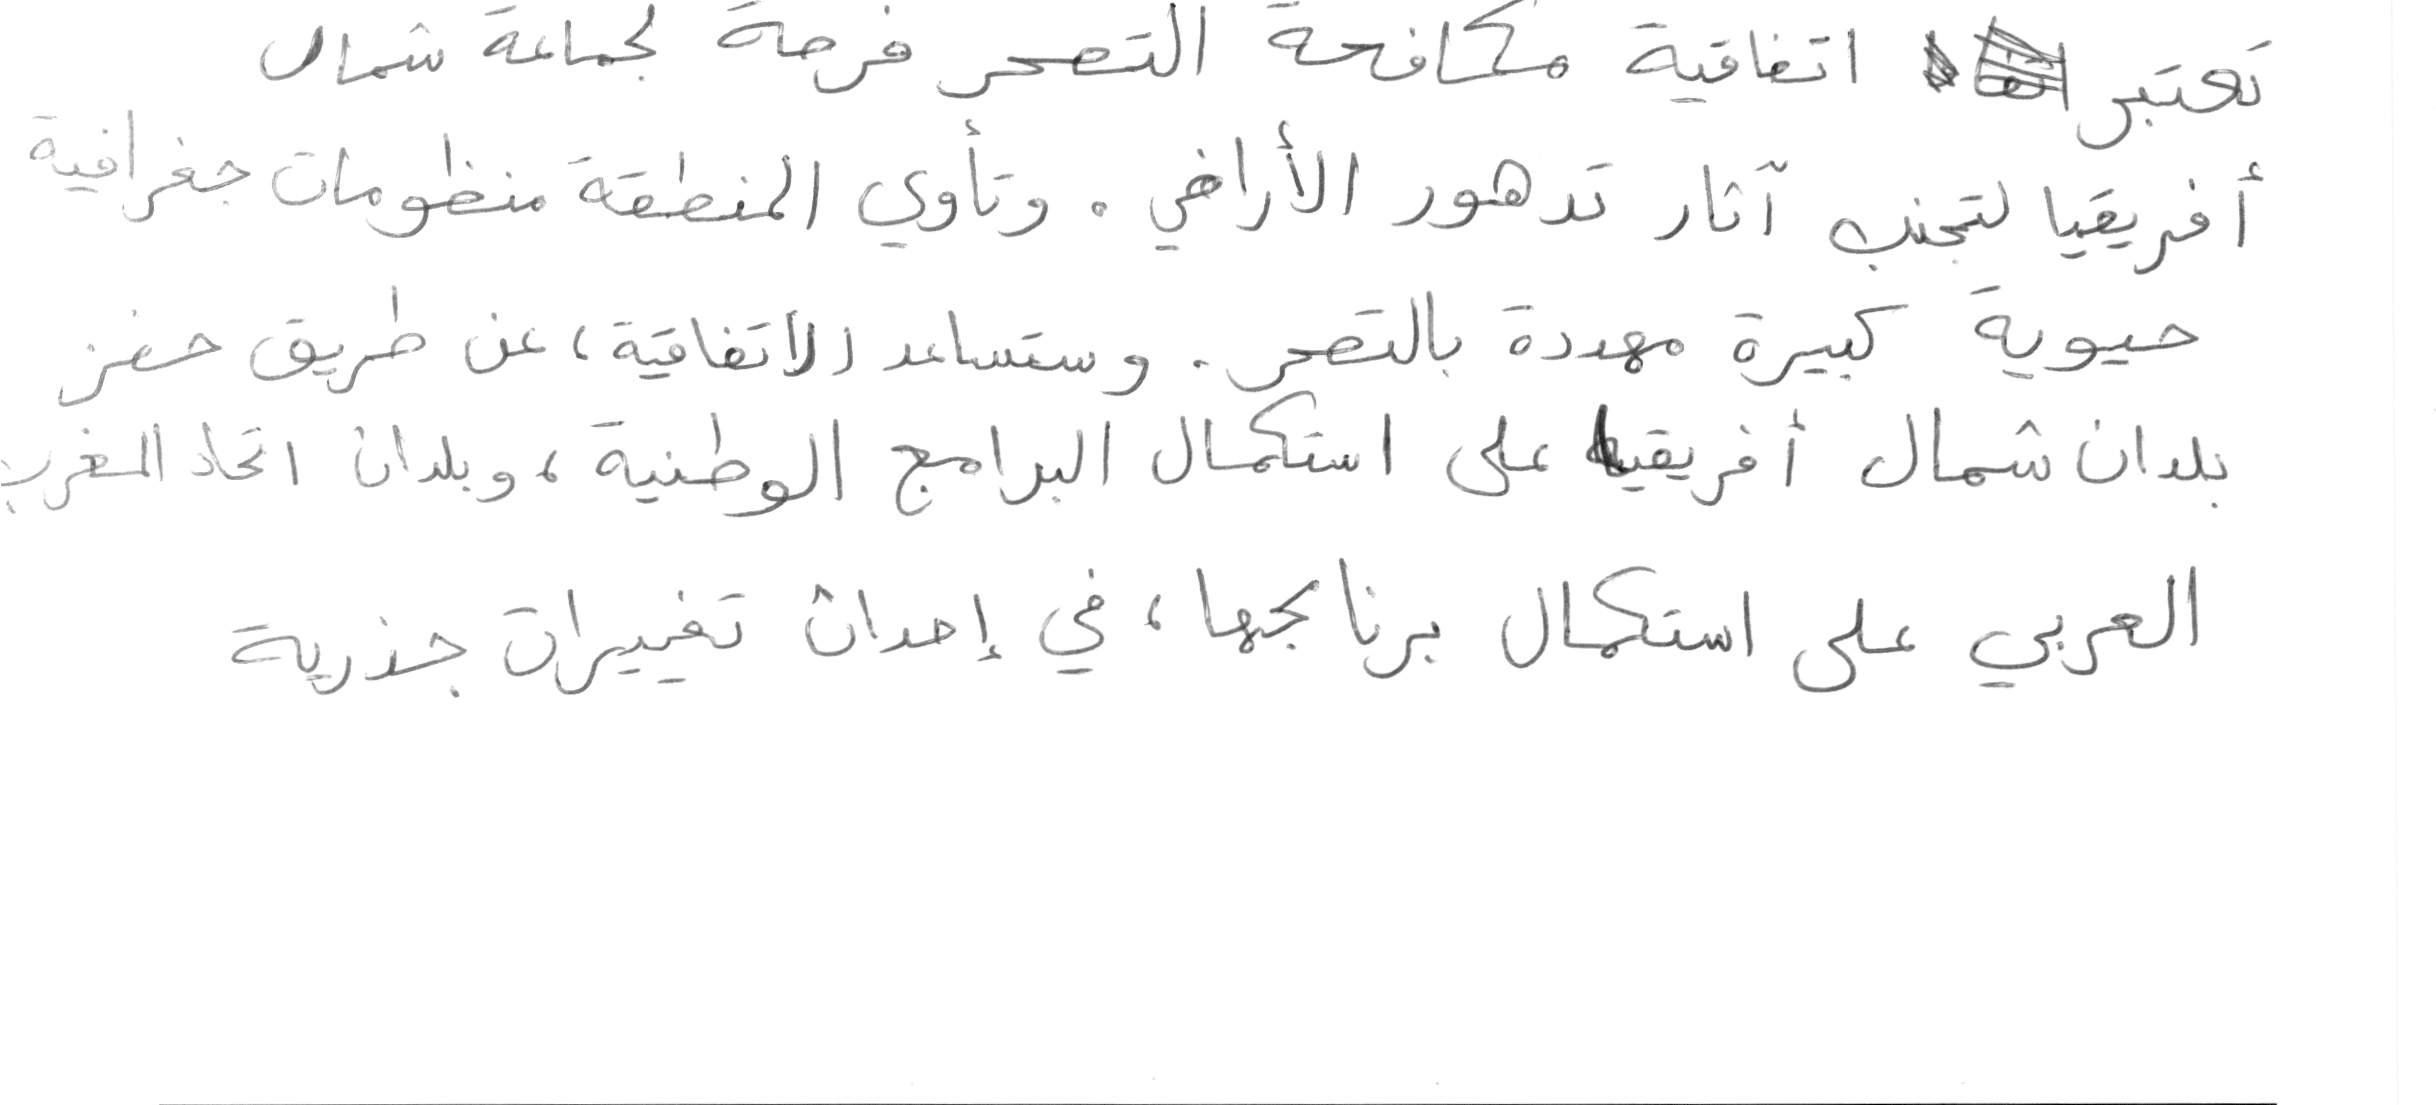 تعتبر اتفاقية مكافحة التصحر فرصة لجماعة شمال
أفريقيا لتجنب آثار تدهور الأراضي . وتأوي المنطقة منظومات جغرافية
حيوية كبيرة مهددة بالتصحر . وستساعد الاتفاقية ، عن طريق حفز
بلدان شمال أفريقيا على استكمال البرامج الوطنية ، وبلدان اتحاد المغرب
العربي على استكمال برنامجها ، في إحداث تغييرات جذرية